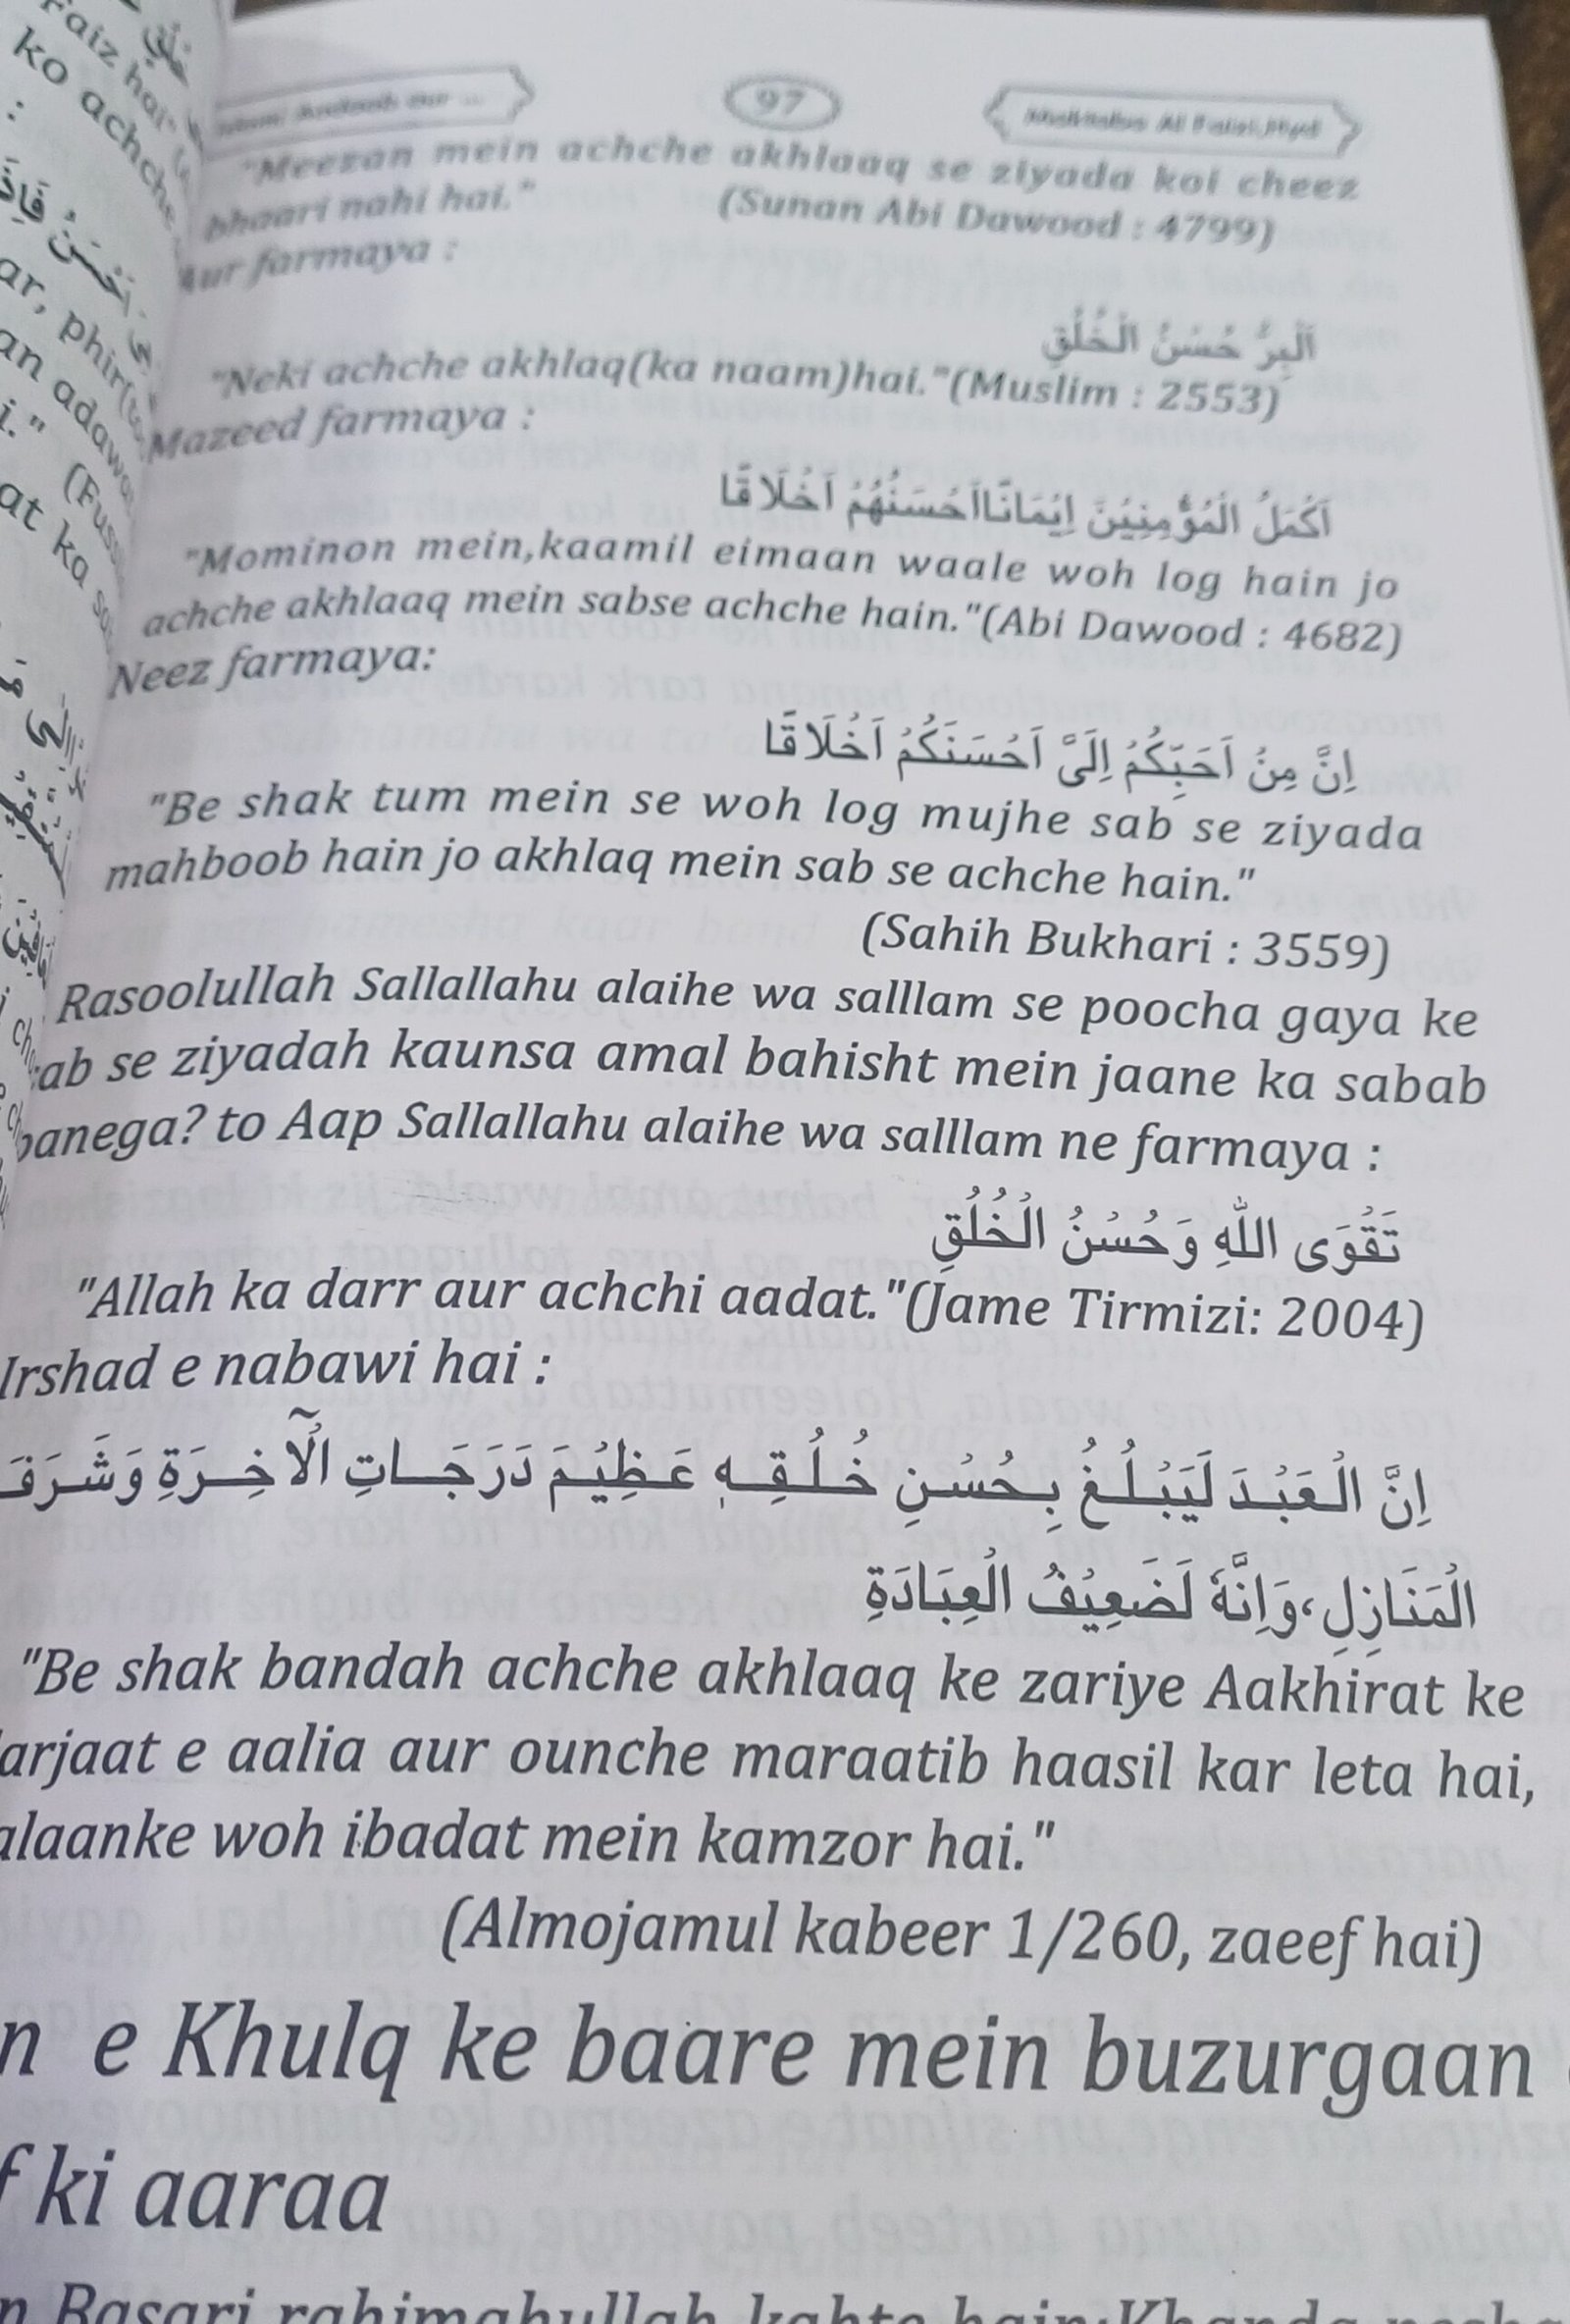 97
"Meezan mein achche akhlaaq se ziyada koi cheez
bhaari nahi hai." (Sunan Abi Dawood : 4799)
Aur farmaya :
اَلْبِرُّ حُسْنُ الْخُلُقِ
"Neki achche akhlaq(ka naam)hai."(Muslim : 2553)
Mazeed farmaya :
اَكْمَلُ الْمُؤْمِنِيْنَ اِيْمَانًااَحْسَنُهُمْ اَخْلَاقًا
"Mominon mein,kaamil eimaan waale woh log hain jo
achche akhlaaq mein sabse achche hain."(Abi Dawood : 4682)
Neez farmaya:
اِنَّ مِنْ اَحَبِّكُمْ اِلَىَّ اَحْسَنَكُمْ اَخْلَاقًا
"Be shak tum mein se woh log mujhe sab se ziyada
mahboob hain jo akhlaq mein sab se achche hain."
(Sahih Bukhari : 3559)
Rasoolullah Sallallahu alaihe wa salllam se poocha gaya ke
ab se ziyadah kaunsa amal bahisht mein jaane ka sabab
banega? to Aap Sallallahu alaihe wa salllam ne farmaya :
تَقْوَى اللهِ وَحُسْنُ الْخُلُقِ
"Allah ka darr aur achchi aadat."(Jame Tirmizi: 2004)
Irshad e nabawi hai :
اِنَّ الْعَبْدَ لَيَبْلُغُ بِحُسْنِ خُلُقِهٖ عَظِيْمَ دَرَجَاتِ الْآخِرَةِ وَشَرَفَ
الْمَنَازِلِ،وَاِنَّهٗ لَضَعِيْفُ الْعِبَادَةِ
"Be shak bandah achche akhlaaq ke zariye Aakhirat ke
arjaat e aalia aur ounche maraatib haasil kar leta hai,
alaanke woh ibadat mein kamzor hai."
(Almojamul kabeer 1/260, zaeef hai)
n e Khulq ke baare mein buzurgaan
f ki aaraa
n Basari rahimahullah kahte hain: